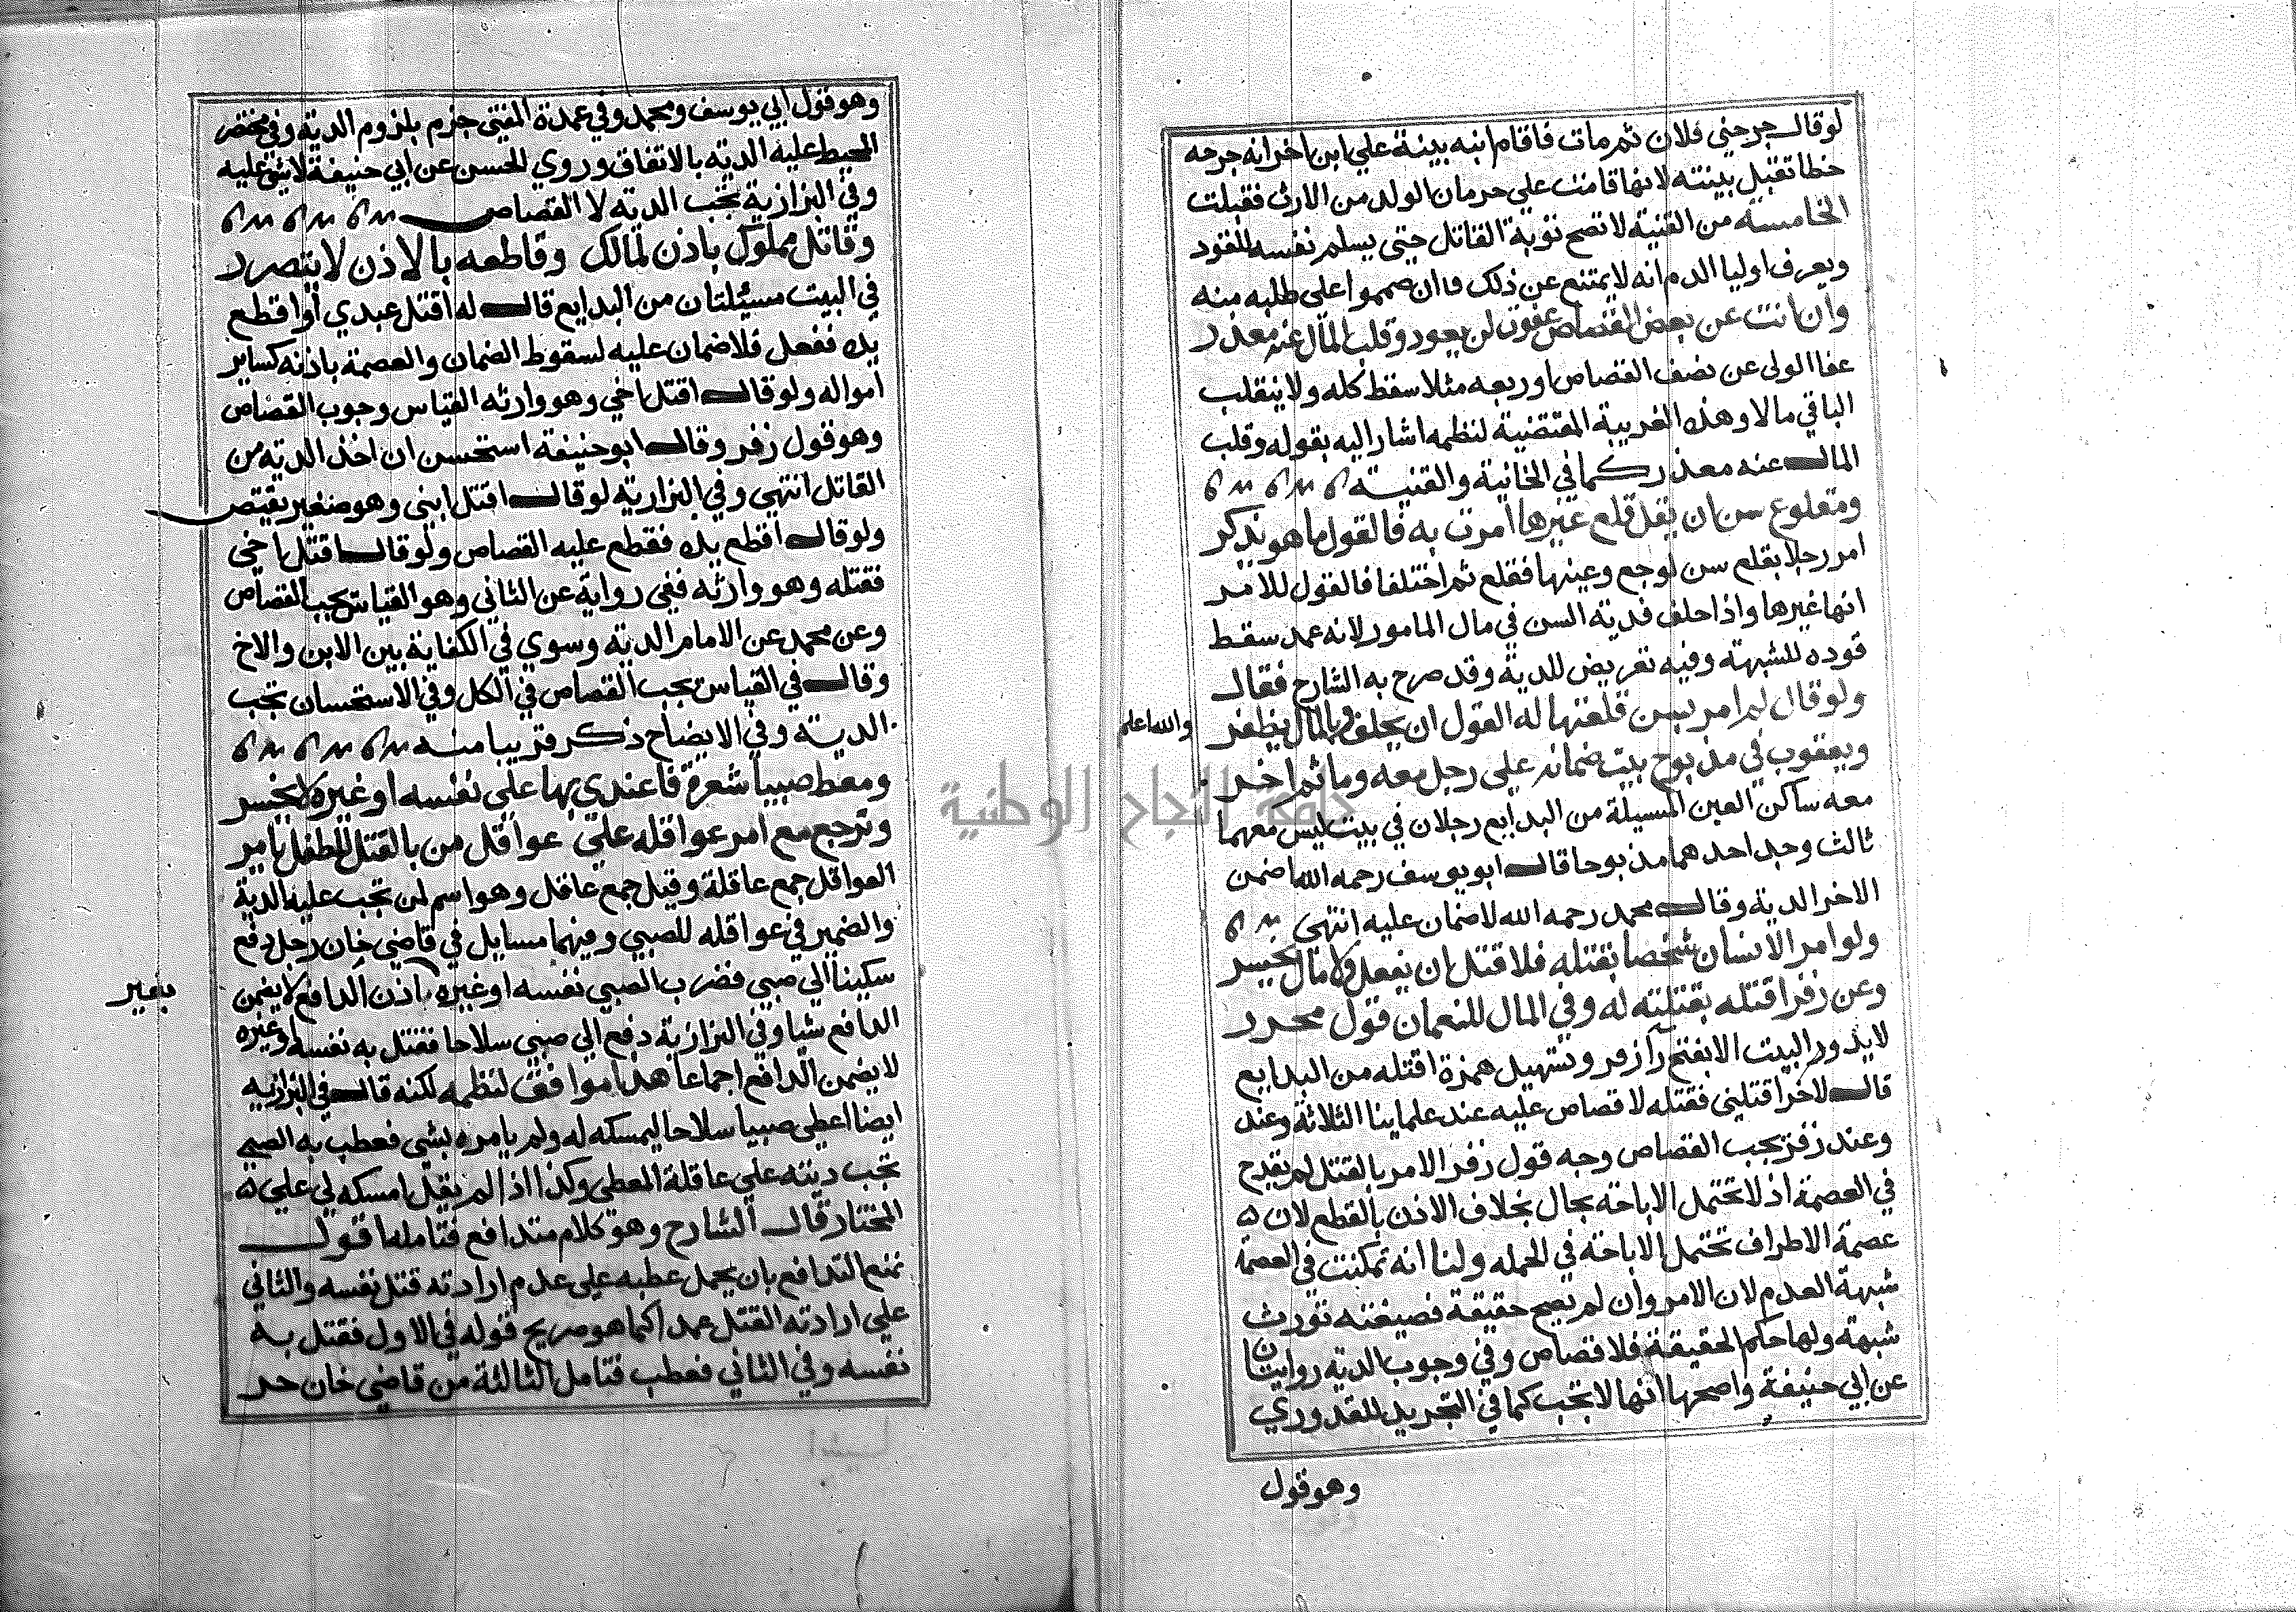 لو قال جرحني فلان ثم مات فاقام ابنه بينة علي ابن اخر انه جرحه
خطا تقبل بينته لانها قامت على حرمان الولد من الارث فقبلت
الخامسة من القنية لا تصح توبة القاتل حتى يسلم نفسه للقود
ويعرف اوليا الدم انه لا يمتنع عن ذلك فان صمموا على طلبه منه
وان انت عن بعض القصاص عفوت لن يعود وقلب المال عنه معذر
عفا الولى عن نصف القصاص او ربعه مثلا سقط كله ولا ينقلب
الباقي مالا وهذه الغريبة المقتضية لنظمه اشار اليه بقوله وقلب
المال عنه معذر كما في الخانية والقنية
ومقلوع سن ان يقل قلع غيرها امرت به فالقول ما هو يذكر
امر رجلا بقلع سن لوجع وعينها فقلع ثم اختلفا فالقول للامر
انها غيرها واذا حلف فدية السن في مال المامور لانه عمد سقط
قوده للشبهة وفيه تعريض للدية وقد صرح به الشارح فقال
ولو قال لم امر بسن قلعتها له القول ان يحلف وبالمال يظفر
والله اعلم
ويعقوب في مذبوح بيت ضمانه علي رجل معه وما ثم اخر
معه ساكن العين المسيلة من البدايع رجلان في بيت ليس معهما
ثالث وجد احدهما مذبوحا قال ابو يوسف رحمه الله اضمن
الاخر الدية وقال محمد رحمه الله لا ضمان عليه انتهى
ولو امر الانسان شخصا بقتله فلا قتل ان يفعل ولا مال يخسر
وعن زفر اقتله بقتلته له وفي المال للنعمان قول محرر
لا يذور البيت الا بفتح رآ زفر وتسهيل همزة اقتله من البدايع
قال لاخر اقتلني فقتله لا قصاص عليه عند علماينا الثلاثة وعند
وعند زفر يجب القصاص وجه قول زفر الامر بالقتل لم يقدح
في العصمة اذ لا تحتمل الاباحة بحال بخلاف الاذن بالقطع لان
عصمة الاطراف تحتمل الاباحة في الجمله ولنا انه تمكنت في العصمة
شبهة العدم لان الامر وان لم يصح حقيقة فصيغته تورث
شبهة ولها حكم الحقيقة فلا قصاص وفي وجوب الدية روايتان
عن ابي حنيفة واصحها انها لا تجب كما في التجريد للقدوري
وهو قول
وهو قول ابي يوسف ومحمد وفي عمدة المفتي جزم بلزوم الدية وفي مختصر
المحيط عليه الدية بالاتفاق وروي الحسن عن ابي حنيفة لا شي عليه
وفي البزازية تجب الدية لا القصاص
وقاتل مملوك باذن لمالك وقاطعه بالاذن لا يتصرر
في البيت مسيئلتان من البدايع قال له اقتل عبدي او اقطع
يده ففعل فلا ضمان عليه لسقوط الضمان والعصمة باذنه كساير
امواله ولو قال اقتل اخي وهو وارثه القياس وجوب القصاص
وهو قول زفر وقال ابو حنيفة استحسن ان اخذ الدية من
القاتل انتهي وفي البزازية لو قال اقتل ابني وهو صغير يقتص
ولو قال اقطع يده فقطع عليه القصاص ولو قال اقتل اخي
فقتله وهو وارثه ففي رواية عن الثاني وهو القياس يجب القصاص
وعن محمد عن الامام الدية وسوي في الكفاية بين الابن والاخ
وقال في القياس يجب القصاص في الكل وفي الاستحسان تجب
الدية وفي الايضاح ذكر قريبا منه
ومعط صبيا شفرة فاعتدي بها علي نفسه او غيره لا يخسر
وترجع مع امر عواقله علي عواقل من بالقتل للطفل يامر
العواقل جمع عاقلة وقيل جمع عاقل وهو اسم لمن تجب عليه الدية
والضمير في عواقله للصبي وفيهما مسايل في قاضي خان رجل دفع
سكينا الي صبي فضرب الصبي نفسه او غيره باذن الدافع لا يضمن
بغير
الدافع شيا وفي البزازية دفع الي صبي سلاحا فقتل به نفسه او غيره
لا يضمن الدافع اجماعا هذا موافق لنظمه لكنه قال في البزازيه
ايضا اعطي صبيا سلاحا ليمسكه له ولم يامره بشي فعطب به الصبي
تجب ديته علي عاقلة المعطي وكذا اذا لم يقل امسكه لي علي
المختار قال الشارح وهو كلام متدافع فتامله اقول
نمنع التدافع بان يحمل عطبه علي عدم ارادته قتل نفسه والثاني
علي ارادته القتل عمدا كما هو صريح قوله في الاول فقتل به
نفسه وفي الثاني فعطب فتامل الثالثة من قاضي خان حر
جامعة النجاح الوطنية